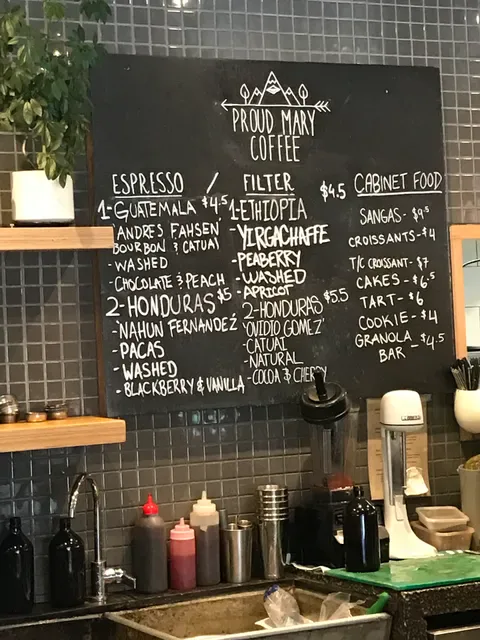 PROUD MARY
COFFEE
ESPRESSO /
1-GUATEMALA $4.5
'ANDRES FAHSEN'
BOURBON & CATUAI
- WASHED
- CHOCOLATE & PEACH
2-HONDURAS $5
-'NAHUN FERNANDEZ'
- PACAS
- WASHED
- BLACKBERRY & VANILLA
FILTER $4.5
1-ETHIOPIA
-YIRGACHAFFE
-PEABERRY
-WASHED
-APRICOT
2-HONDURAS $5.5
'OVIDIO GOMEZ'
-CATUAI
-NATURAL
-COCOA & CHERRY
CABINET FOOD
SANGAS- $9.5
CROISSANTS- $4
T/C CROISSANT- $7
CAKES- $6.5
TART- $6
COOKIE- $4
GRANOLA BAR - $4.5